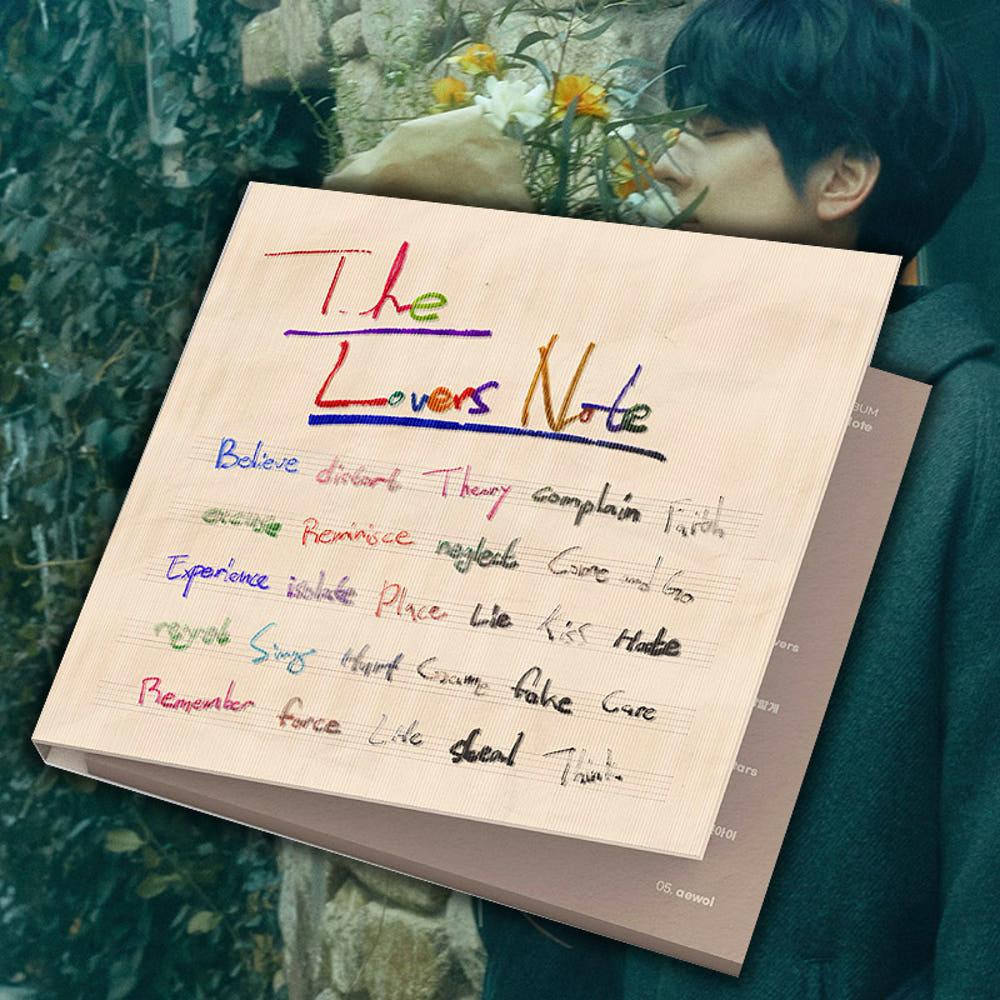 The
Lovers Note
Believe distort Theory complain Faith
excuse Reminisce neglect Come and Go
Experience isolate Place Lie Kiss Hate
regret Sing Hunt Game fake Care
Remember force Life steal Think
05. aewol